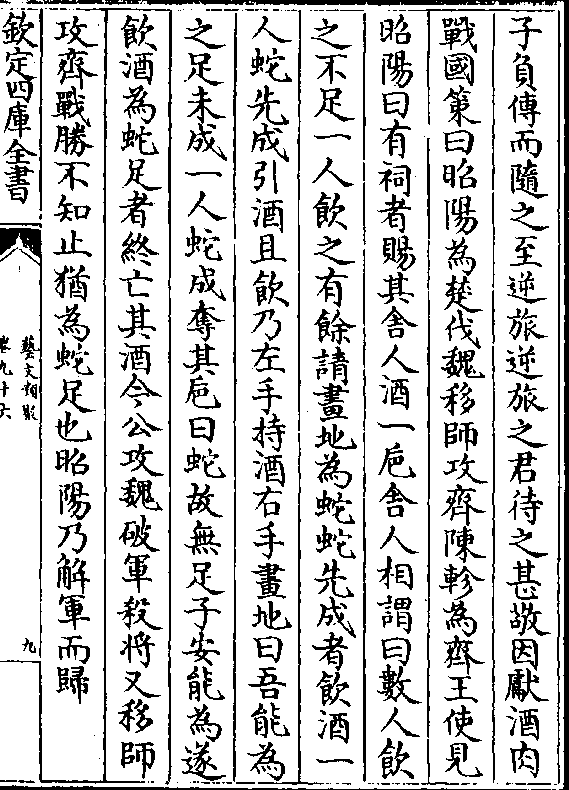 子負傳而隨之至逆旅逆旅之君待之甚敬因獻酒肉
戰國策曰昭陽為楚伐魏移師攻齊陳軫為齊王使見
昭陽曰有祠者賜其舍人酒一巵舍人相謂曰數人飲
之不足一人飲之有餘請畫地為蛇蛇先成者飲酒一
人蛇先成引酒且飲乃左手持酒右手畫地曰吾能為
之足未成一人蛇成奪其巵曰蛇故無足子安能為遂
飲酒為蛇足者終亡其酒今公攻魏破軍殺將又移師
攻齊戰勝不知止猶為蛇足也昭陽乃解軍而歸
欽定四庫全書
藝文類聚
卷九十六
九